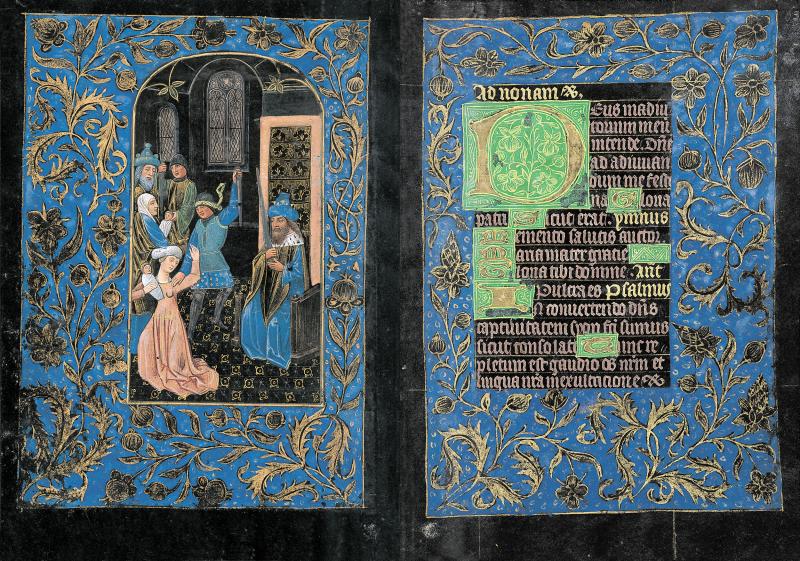 Ad nonam
Deus in adiu
torium meu
intende. Dñe
ad adiuuan
dum me festi
na Gloria
patri Sicut erat. ymnus
Memento salutis auctor
Maria mater gratie
Gloria tibi domine. Ant
Pulcra es Psalmus
In conuertendo dñs
captiuitatem syon facti sumus
sicut consolati Tunc re
pletum est gaudio os nrm et
lingua nra in exultatione